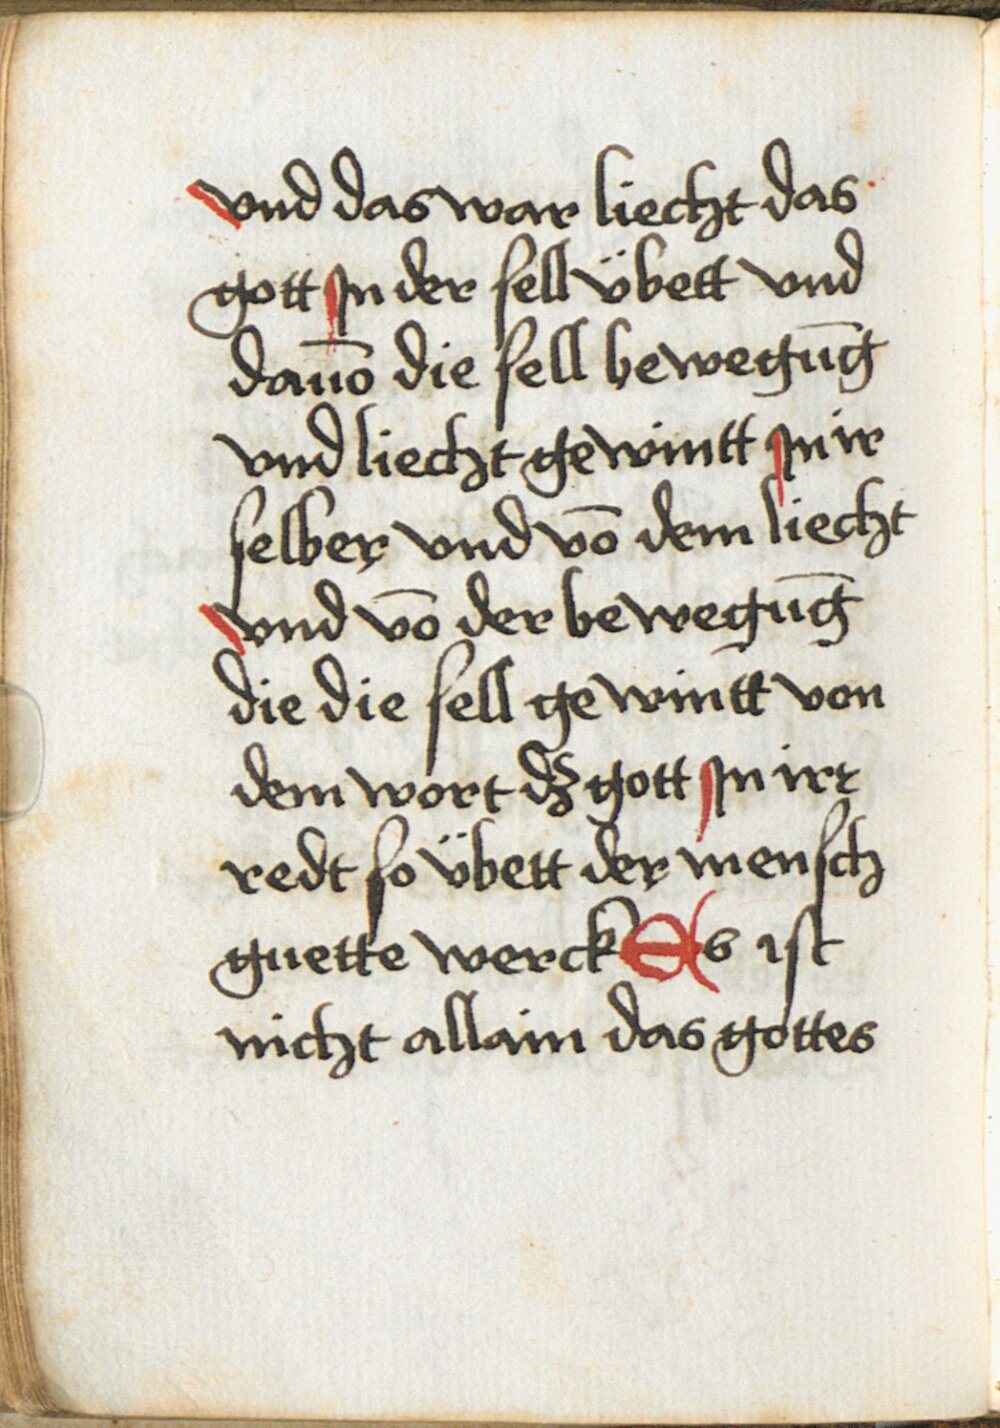 vnd das war liecht das
gott Jn der sell übett vnd
dauō die sell bewegūg
vnd liecht gewintt Jn ir
selber vnd vō dem liecht
vnd vō der bewegūg
die die sell gewintt von
dem wort dz gott Jn irr
redt so übett der mensch
guette werck Es ist
nicht allain das gottes